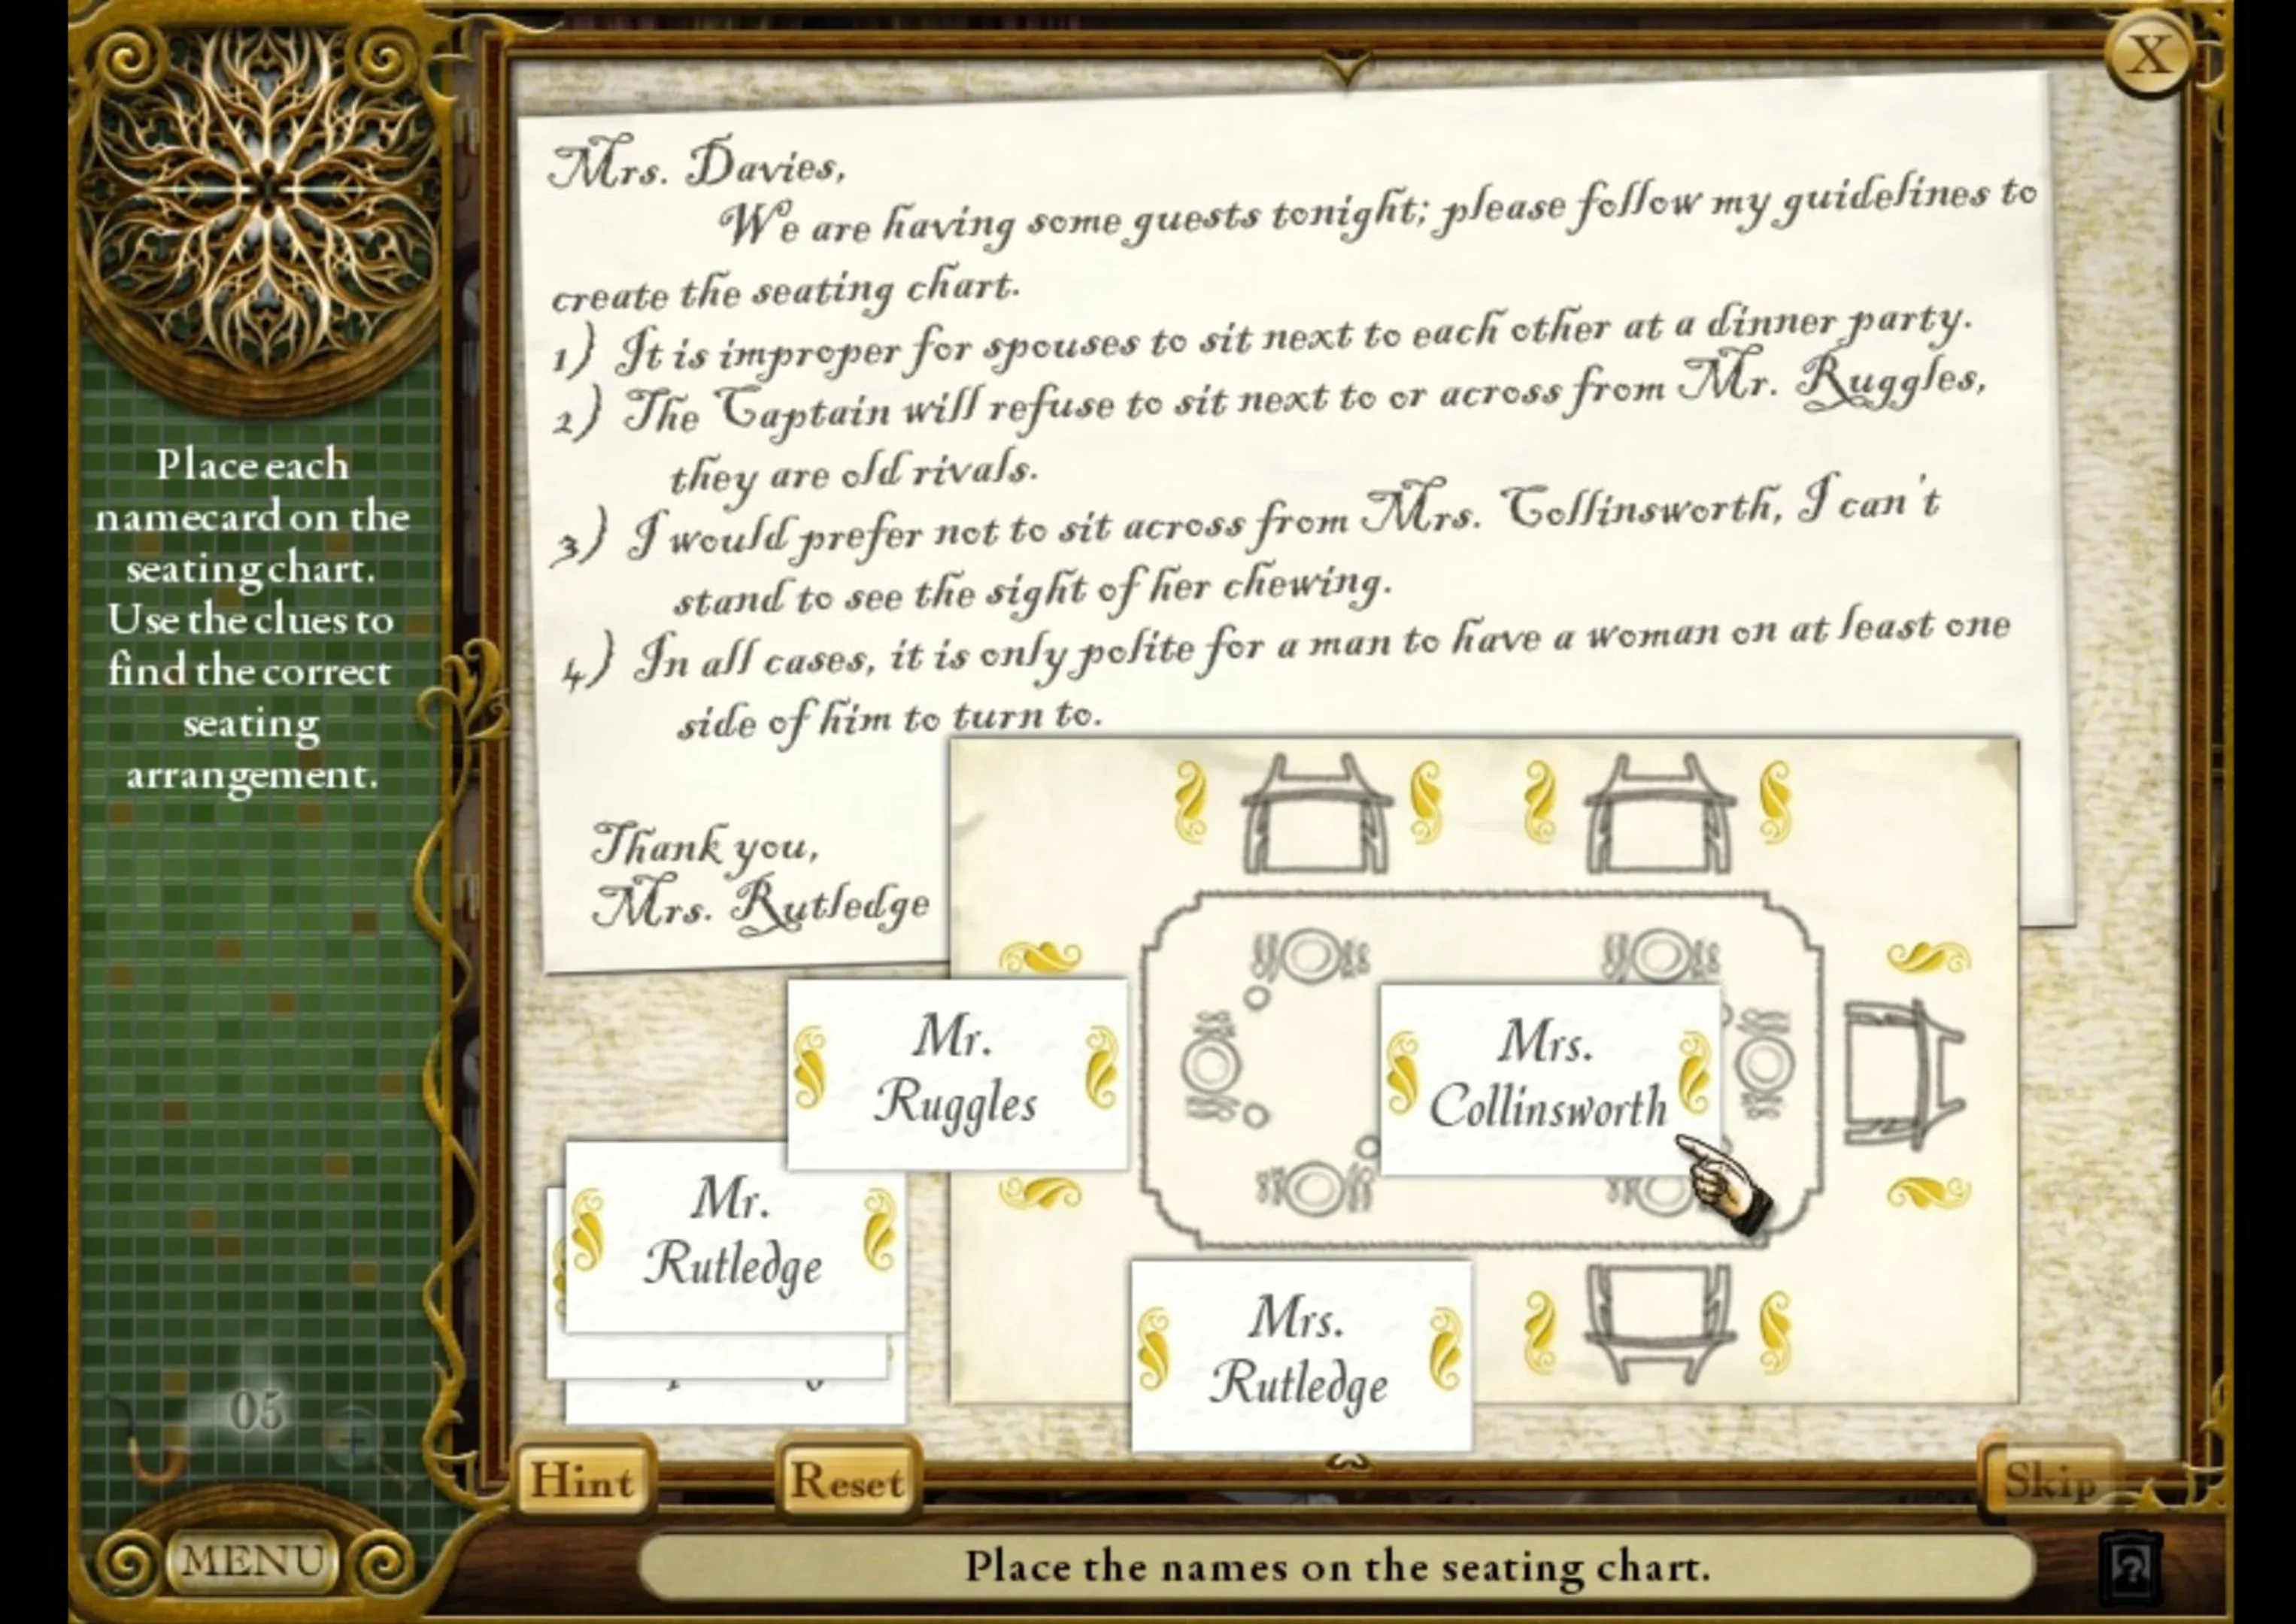 X
Mrs. Davies,
We are having some guests tonight; please follow my guidelines to
create the seating chart.
1) It is improper for spouses to sit next to each other at a dinner party.
2) The Captain will refuse to sit next to or across from Mr. Ruggles,
they are old rivals.
3) I would prefer not to sit across from Mrs. Collinsworth, I can't
stand to see the sight of her chewing.
4) In all cases, it is only polite for a man to have a woman on at least one
side of him to turn to.
Thank you,
Mrs. Rutledge
Place each
namecard on the
seating chart.
Use the clues to
find the correct
seating
arrangement.
Mr.
Ruggles
Mrs.
Collinsworth
Mr.
Rutledge
Mrs.
Rutledge
05
Hint
Reset
Skip
MENU
Place the names on the seating chart.
?